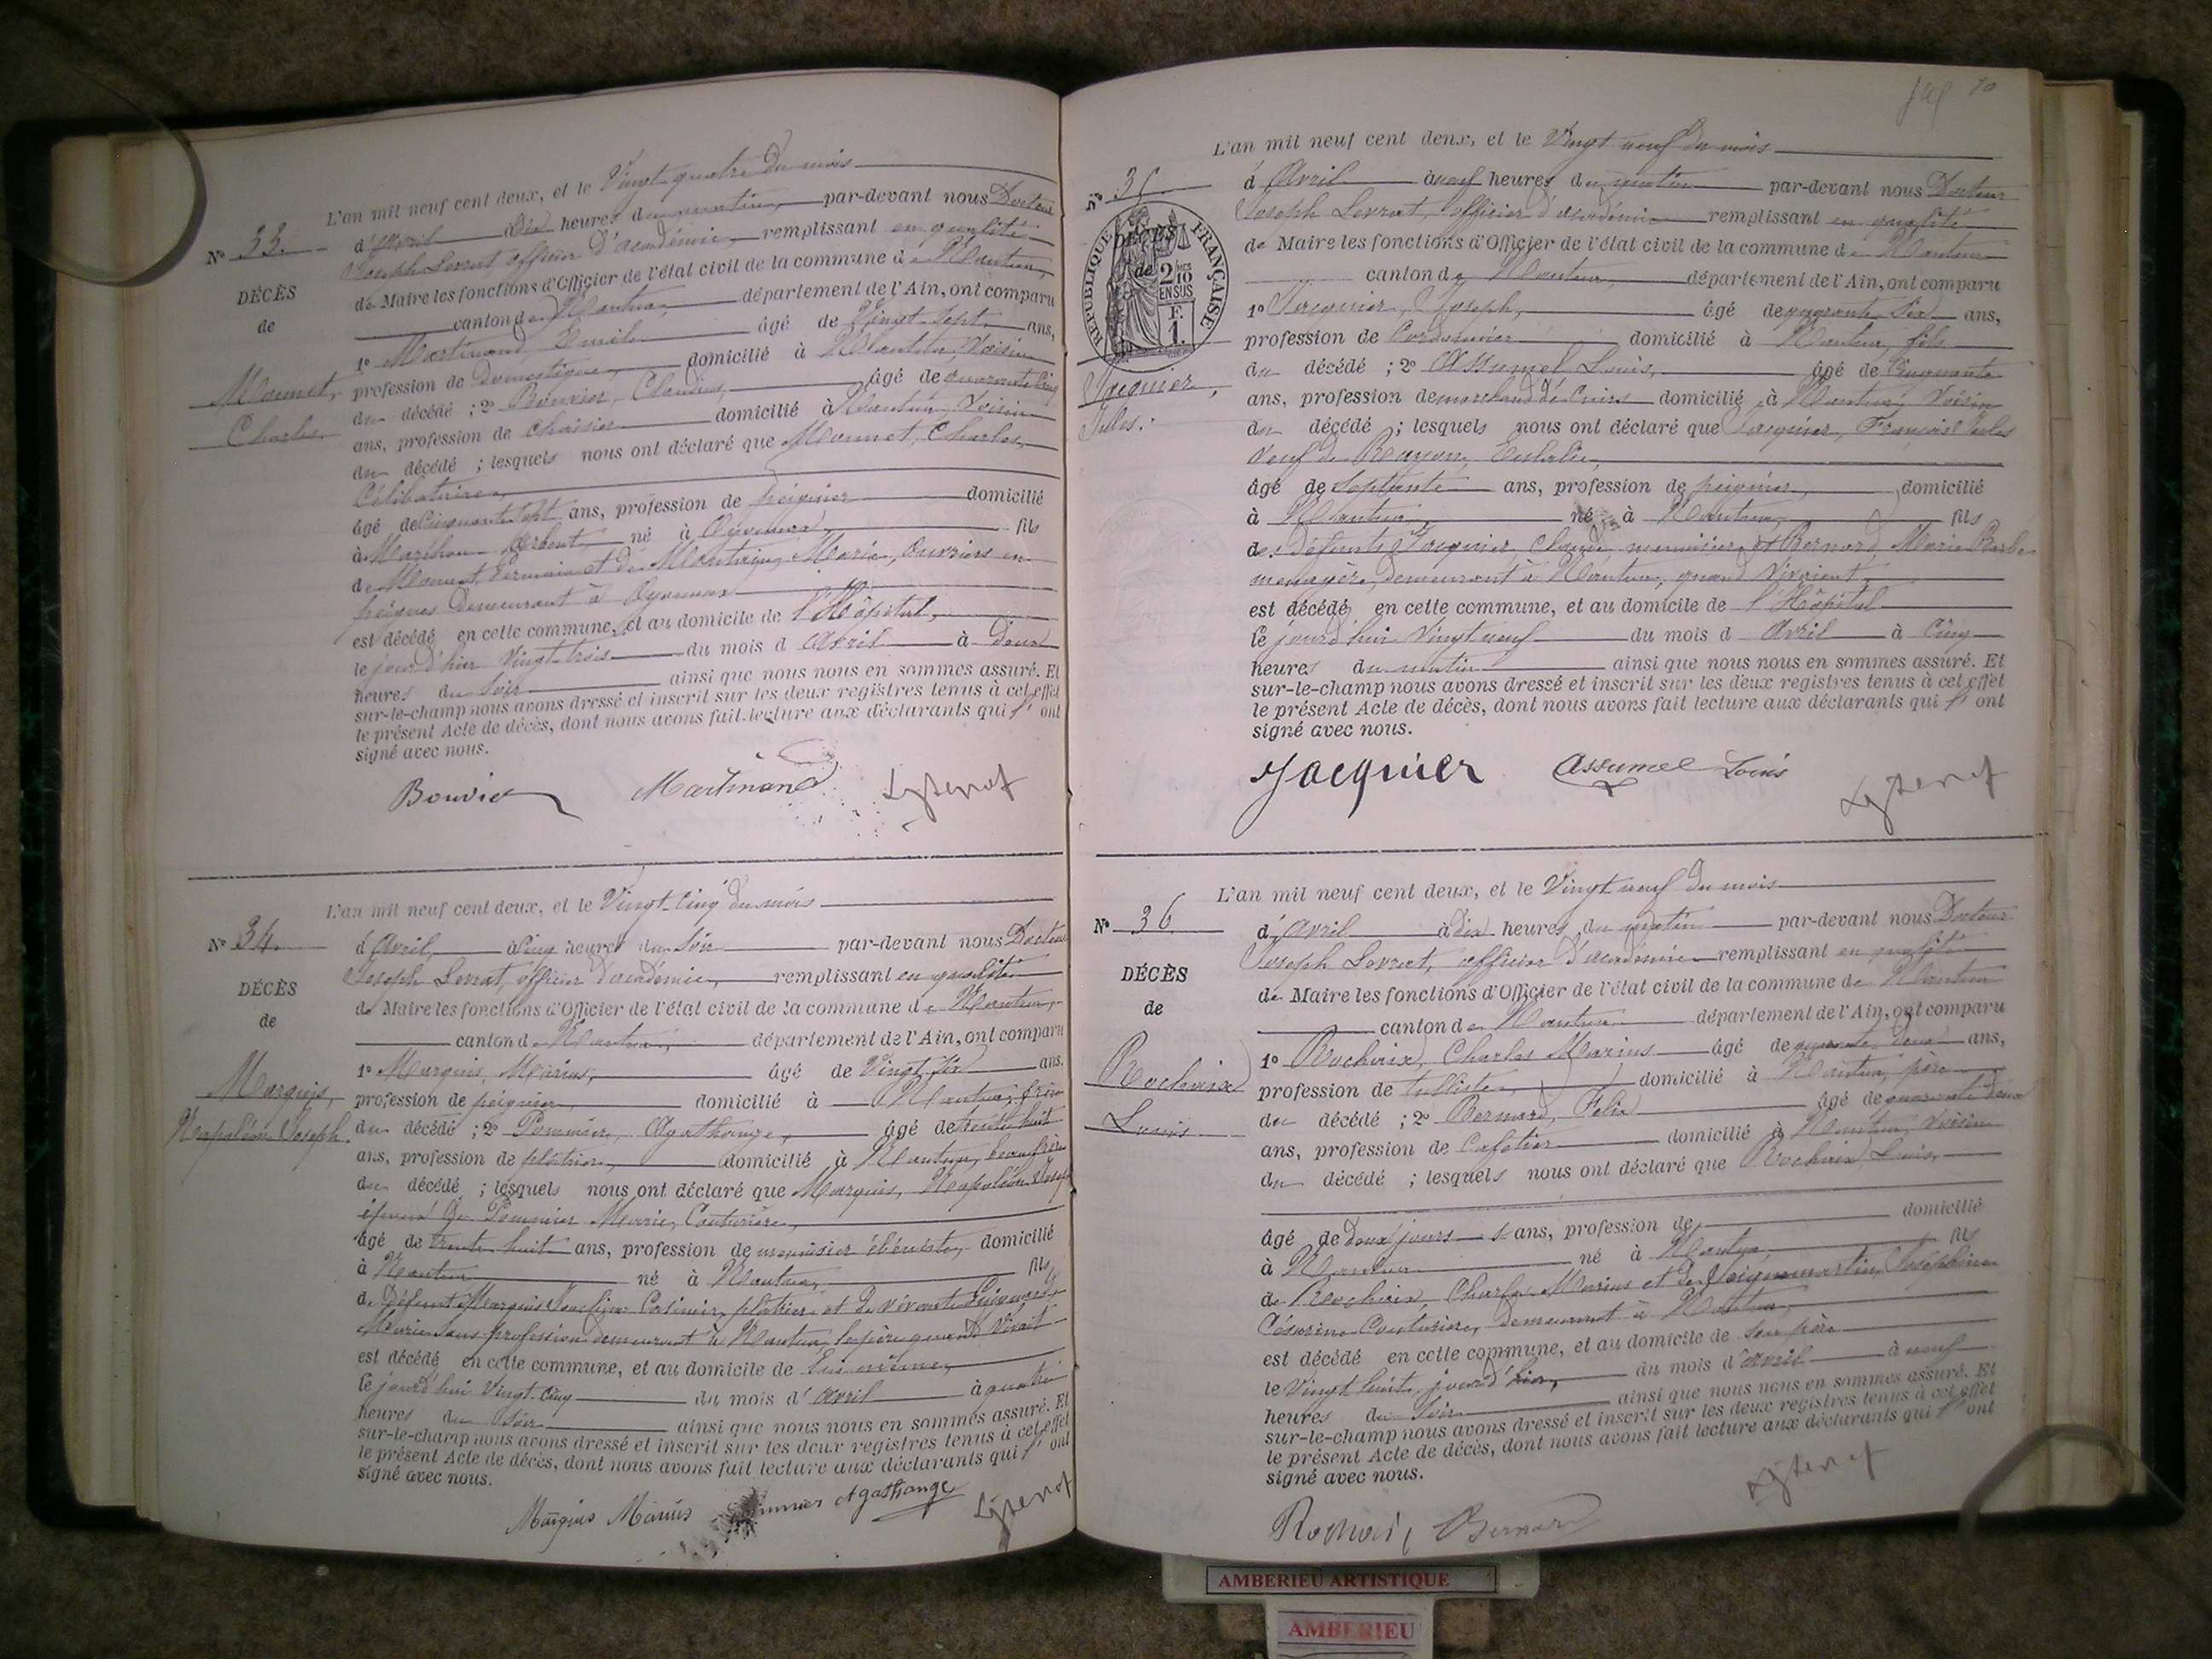 L'an mil neuf cent deux, et le Vingt quatre du mois
N° 33.
d'Avril Dix heures du matin, par-devant nous Docteur
Joseph Levrat officier d'académie, remplissant en qualité
DÉCÈS
de Maire les fonctions d'Officier de l'état civil de la commune de Nantua,
de
canton de Nantua, département de l'Ain, ont comparu
1° Martinand, Emile âgé de Vingt sept ans,
Monnet,
profession de Domestique, domicilié à Nantua, Voisin
du décédé ; 2° Bouvier, Claudius, âgé de quarante cinq
Charles
ans, profession de chaisier domicilié à Nantua, Voisin
du décédé ; lesquels nous ont déclaré que Monnet, Charles,
Célibataire,
âgé de Cinquante sept ans, profession de peignier domicilié
à Marchon Arbent, né à Oyonnax, fils
de Monnet, Germain et de Marie, Ouvriers en
peignes demeurant à Oyonnax
est décédé en cette commune, et au domicile de l'Hôpital,
le jour d'hier Vingt-trois du mois d Avril à Deux
heures du soir ainsi que nous nous en sommes assuré. Et
sur-le-champ nous avons dressé et inscrit sur les deux registres tenus à cet effet
le présent Acte de décès, dont nous avons fait lecture aux déclarants qui l' ont
signé avec nous.
Bouvier Martinand
L'an mil neuf cent deux, et le Vingt-Cinq du mois
N° 34.
d'Avril, à Cinq heures du Soir par-devant nous Docteur
Joseph Levrat, officier d'académie, remplissant en qualité
DÉCÈS
de Maire les fonctions d'Officier de l'état civil de la commune de Nantua,
de
canton de Nantua, département de l'Ain, ont comparu
1° Marquis, Marius, âgé de Vingt six ans,
Marquis,
profession de peignier, domicilié à Nantua, frère
Napoléon Joseph.
du décédé ; 2° Pommier, Agathange, âgé de trente huit
ans, profession de plâtrier, domicilié à Nantua, beau frère
du décédé ; lesquels nous ont déclaré que Marquis, Napoléon Joseph
époux de Pommier Marie, Couturière,
âgé de trente huit ans, profession de menuisier ébéniste, domicilié
à Nantua né à Nantua, fils
de Défunt Marquis Casimir, plâtrier et de vivante
Marie Sans profession demeurant à Nantua, le père quand vivait
est décédé en cette commune, et au domicile de
le jourd'hui Vingt-cinq du mois d'Avril à quatre
heures du soir ainsi que nous nous en sommes assuré. Et
sur-le-champ nous avons dressé et inscrit sur les deux registres tenus à cet effet
le présent Acte de décès, dont nous avons fait lecture aux déclarants qui l' ont
signé avec nous.
Marquis Marius Pommier Agathange
70
L'an mil neuf cent deux, et le Vingt neuf du mois
N° 35.
d'Avril à neuf heures du matin par-devant nous Docteur
Joseph Levrat, officier d'académie remplissant en qualité
RÉPUBLIQUE FRANÇAISE
DÉCÈS
de
2/10 EN SUS
F. 1.
de Maire les fonctions d'Officier de l'état civil de la commune de Nantua
canton de Nantua, département de l'Ain, ont comparu
1° Jacquier, Joseph, âgé de quarante Six ans,
profession de Cordonnier domicilié à Nantua, fils
Jacquier,
du décédé ; 2° Assumel Louis, âgé de Cinquante
ans, profession de marchand de Cuirs domicilié à Nantua, Voisin
Jules.
du décédé ; lesquels nous ont déclaré que Jacquier, François Jules
Veuf de Eulalie,
âgé de Septante ans, profession de peignier, domicilié
à Nantua, né à Nantua, fils
des Défunts Jacquier, Claude, menuisier et Bernard, Marie Barbe
menagère, demeurant à Nantua, quand vivaient,
est décédé en cette commune, et au domicile de l'Hôpital
le jourd'hui Vingt neuf du mois d Avril à Cinq
heures du matin ainsi que nous nous en sommes assuré. Et
sur-le-champ nous avons dressé et inscrit sur les deux registres tenus à cet effet
le présent Acte de décès, dont nous avons fait lecture aux déclarants qui l' ont
signé avec nous.
Jacquier Assumel Louis
L'an mil neuf cent deux, et le Vingt neuf du mois
N° 36
d'Avril à dix heures du matin par-devant nous Docteur
Joseph Levrat, officier d'académie remplissant en qualité
DÉCÈS
de Maire les fonctions d'Officier de l'état civil de la commune de Nantua
de
canton de Nantua département de l'Ain, ont comparu
1° Rochaix, Charles Marius âgé de quarante deux ans,
Rochaix
profession de tulliste, domicilié à Nantua, père
du décédé ; 2° Bernard, Félix âgé de quarante deux
Louis
ans, profession de Cafetier domicilié à Nantua, Voisin
du décédé ; lesquels nous ont déclaré que Rochaix, Louis,
âgé de deux jours ans, profession de domicilié
à Nantua né à Nantua, fils
de Rochaix, Charles Marius et de Joséphine
Césarine Couturière, demeurant à Nantua,
est décédé en cette commune, et au domicile de son père
le Vingt huit, jour d'hier, du mois d'Avril à neuf
heures du Soir ainsi que nous nous en sommes assuré. Et
sur-le-champ nous avons dressé et inscrit sur les deux registres tenus à cet effet
le présent Acte de décès, dont nous avons fait lecture aux déclarants qui l' ont
signé avec nous.
Rochaix Bernard
AMBERIEU ARTISTIQUE
AMBERIEU